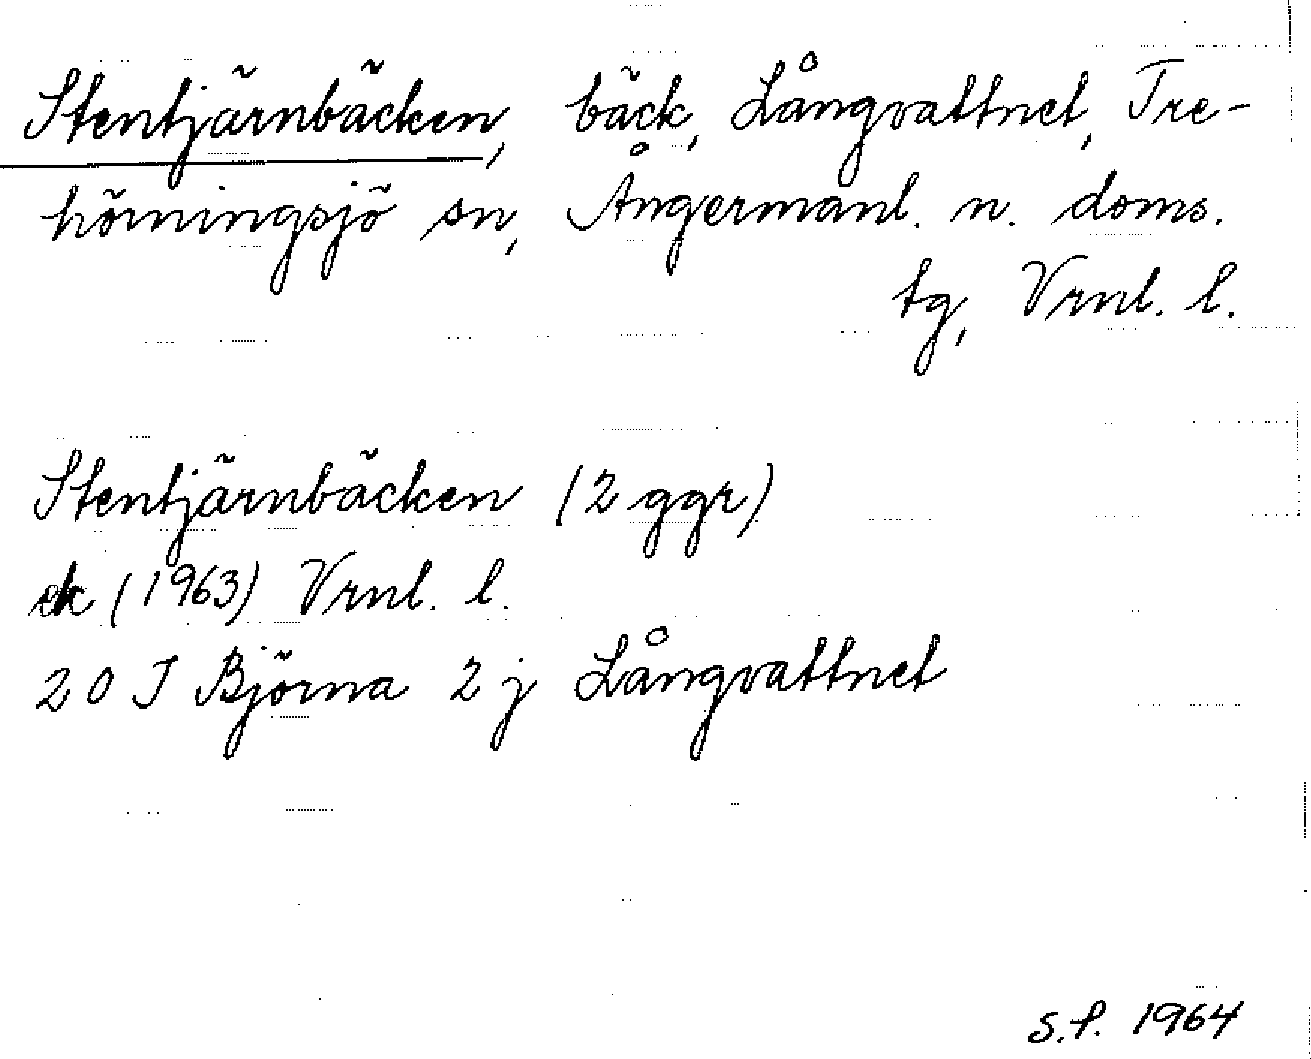 Stentjärnbäcken, bäck, Långvattnet, Tre-
hörningsjö sn, Ångermanl. n. doms.
tg, Vrnl. l.
Stentjärnbäcken (2 ggr)
ek (1963) Vrnl. l.
20 J Björna 2 j Långvattnet
S.P. 1964